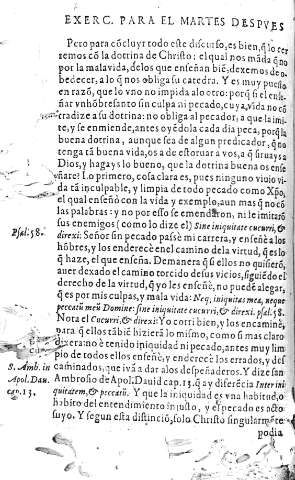 EXERC. PARA EL MARTES DESPVES
Pero para cõcluyr todo este discurso, es bien, q̃ lo cer
remos cõ la dotrina de Christo: el qual nos mãda q̃ no
por la mala vida, de los que enseñan biẽ, dexemos de o-
bedecer, a lo q̃ nos obliga su catedra. Y es muy puesto
en razõ, que lo vno no impida al otro: porq̃ si el ense-
ñar vn hõbre santo sin culpa ni pecado, cuya vida no cõ
tradize a su dotrina: no obliga al pecador, a que la imi-
te, y se enmiende, antes oyẽdola cada dia peca, porq̃ la
buena dotrina, aunque sea de algun predicador, q̃ no
tenga tã buena vida, os a de estoruar a vos, a q̃ siruays a
Dios, y hagays lo bueno, que la dotrina buena os ense-
ñare? Lo primero, cosa clara es, pues ninguno viuio vi-
da tã inculpable, y limpia de todo pecado como Xp̃o,
el qual enseñò con la vida y exemplo, aun mas q̃ no cõ
las palabras: y no por esso se emendaron, ni le imitarõ
sus enemigos (como lo dize el) Sine iniquitate cucurri, &
Psal. 58. direxi: Señor sin pecado passè mi carrera, y enseñè a los
hõbres, y los enderecè en el camino de la virtud, q̃ es lo
q̃ haze, el que enseña. De manera q̃ si ellos no quisierõ,
auer dexado el camino torcido de sus vicios, siguiẽdo el
derecho de la virtud, q̃ yo les enseñè, no puede alegar,
q̃ es por mis culpas, y mala vida: Neq, iniquitas mea, neque
peccatũ meũ Domine: sine iniquitate cucurri, & direxi. psal. 58.
Nota el Cucurri, & direxi: Yo corri bien, y los encaminè,
para q̃ ellos tãbiẽ hizierã lo mismo, como si mas claro
dixera: no è tenido iniquidad ni pecado, antes muy lim
pio de todos ellos enseñè, y enderecè los errados, y des
S. Amb. in caminados, que ivã a dar a los despeñaderos. Y dize san
Apol. Dau. Ambrosio de Apol. Dauid cap. 13. q̃ ay diferẽcia Inter ini
cap. 13. quitatem, & peccatũ. Y que la iniquidad es vna habitud, o
habito del entendimiento injusto, y el pecado es acto
suyo. Y segun esta distinciõ, solo Christo singularmẽte
podia